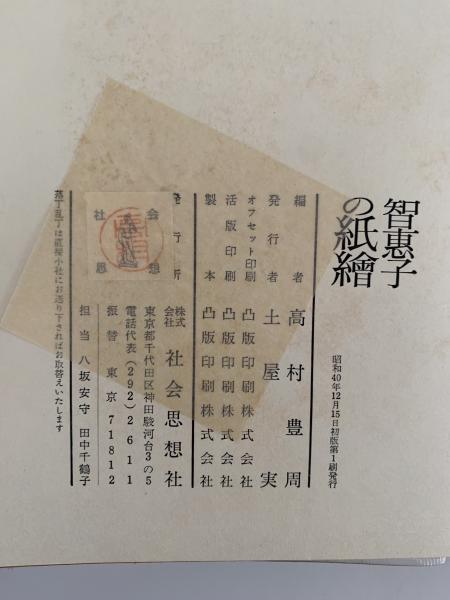 智惠子
の紙繪
昭和40年12月15日初版第1刷発行
編者 高村豊周
発行者 土屋実
オフセット印刷 凸版印刷株式会社
活版印刷 凸版印刷株式会社
製本 凸版印刷株式会社
発行所 株式会社 社会思想社
東京都千代田区神田駿河台3の5
電話代表(292)2611
振替東京71812
担当 八坂安守 田中千鶴子
落丁乱丁は直接小社にお送り下さればお取替えいたします
社会思想